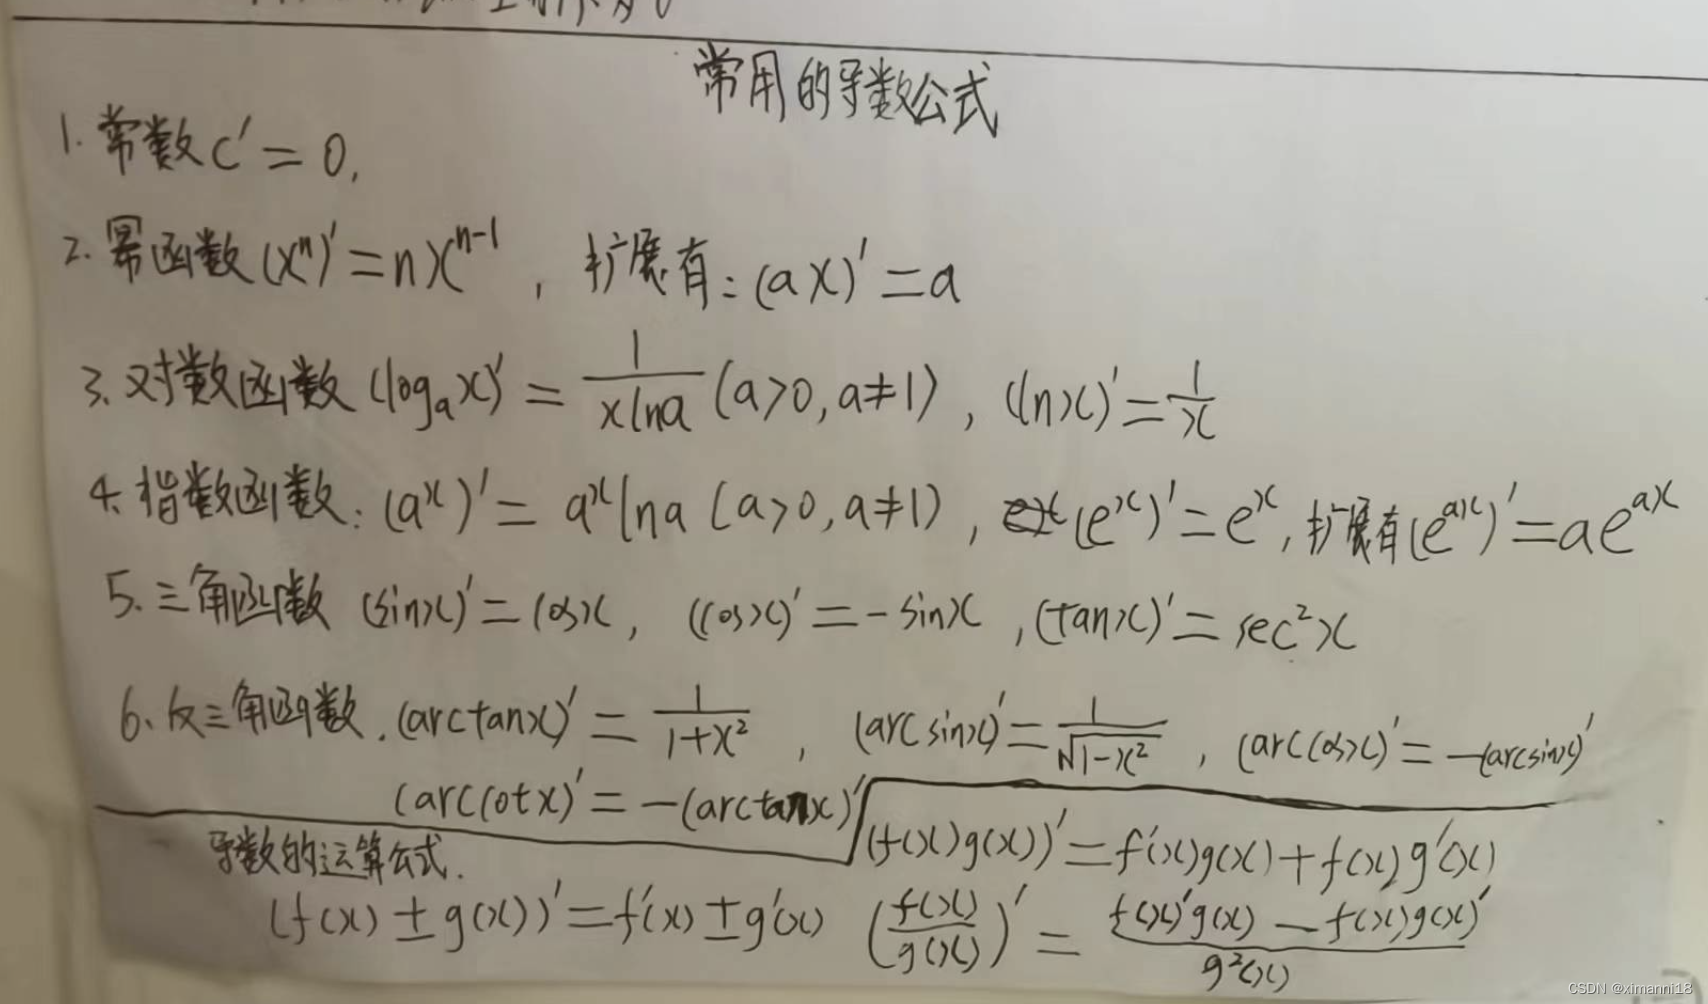 常用的导数公式
1. 常数 C' = 0,
2. 幂函数 (xⁿ)' = nxⁿ⁻¹ , 扩展有: (ax)' = a
3. 对数函数 (logₐx)' = 1/(xlna) (a>0, a≠1) , (lnx)' = 1/x
4. 指数函数: (aˣ)' = aˣlna (a>0, a≠1) , (eˣ)' = eˣ, 扩展有 (eᵃˣ)' = aeᵃˣ
5. 三角函数 (sinx)' = cosx, (cosx)' = -sinx , (tanx)' = sec²x
6. 反三角函数. (arctanx)' = 1/(1+x²) , (arcsinx)' = 1/√(1-x²) , (arccosx)' = -(arcsinx)'
(arccotx)' = -(arctanx)'
导数的运算公式.
(f(x)g(x))' = f'(x)g(x) + f(x)g'(x)
(f(x) ± g(x))' = f'(x) ± g'(x) (f(x)/g(x))' = (f(x)'g(x) - f(x)g(x)')/g²(x)
CSDN @ximanni18